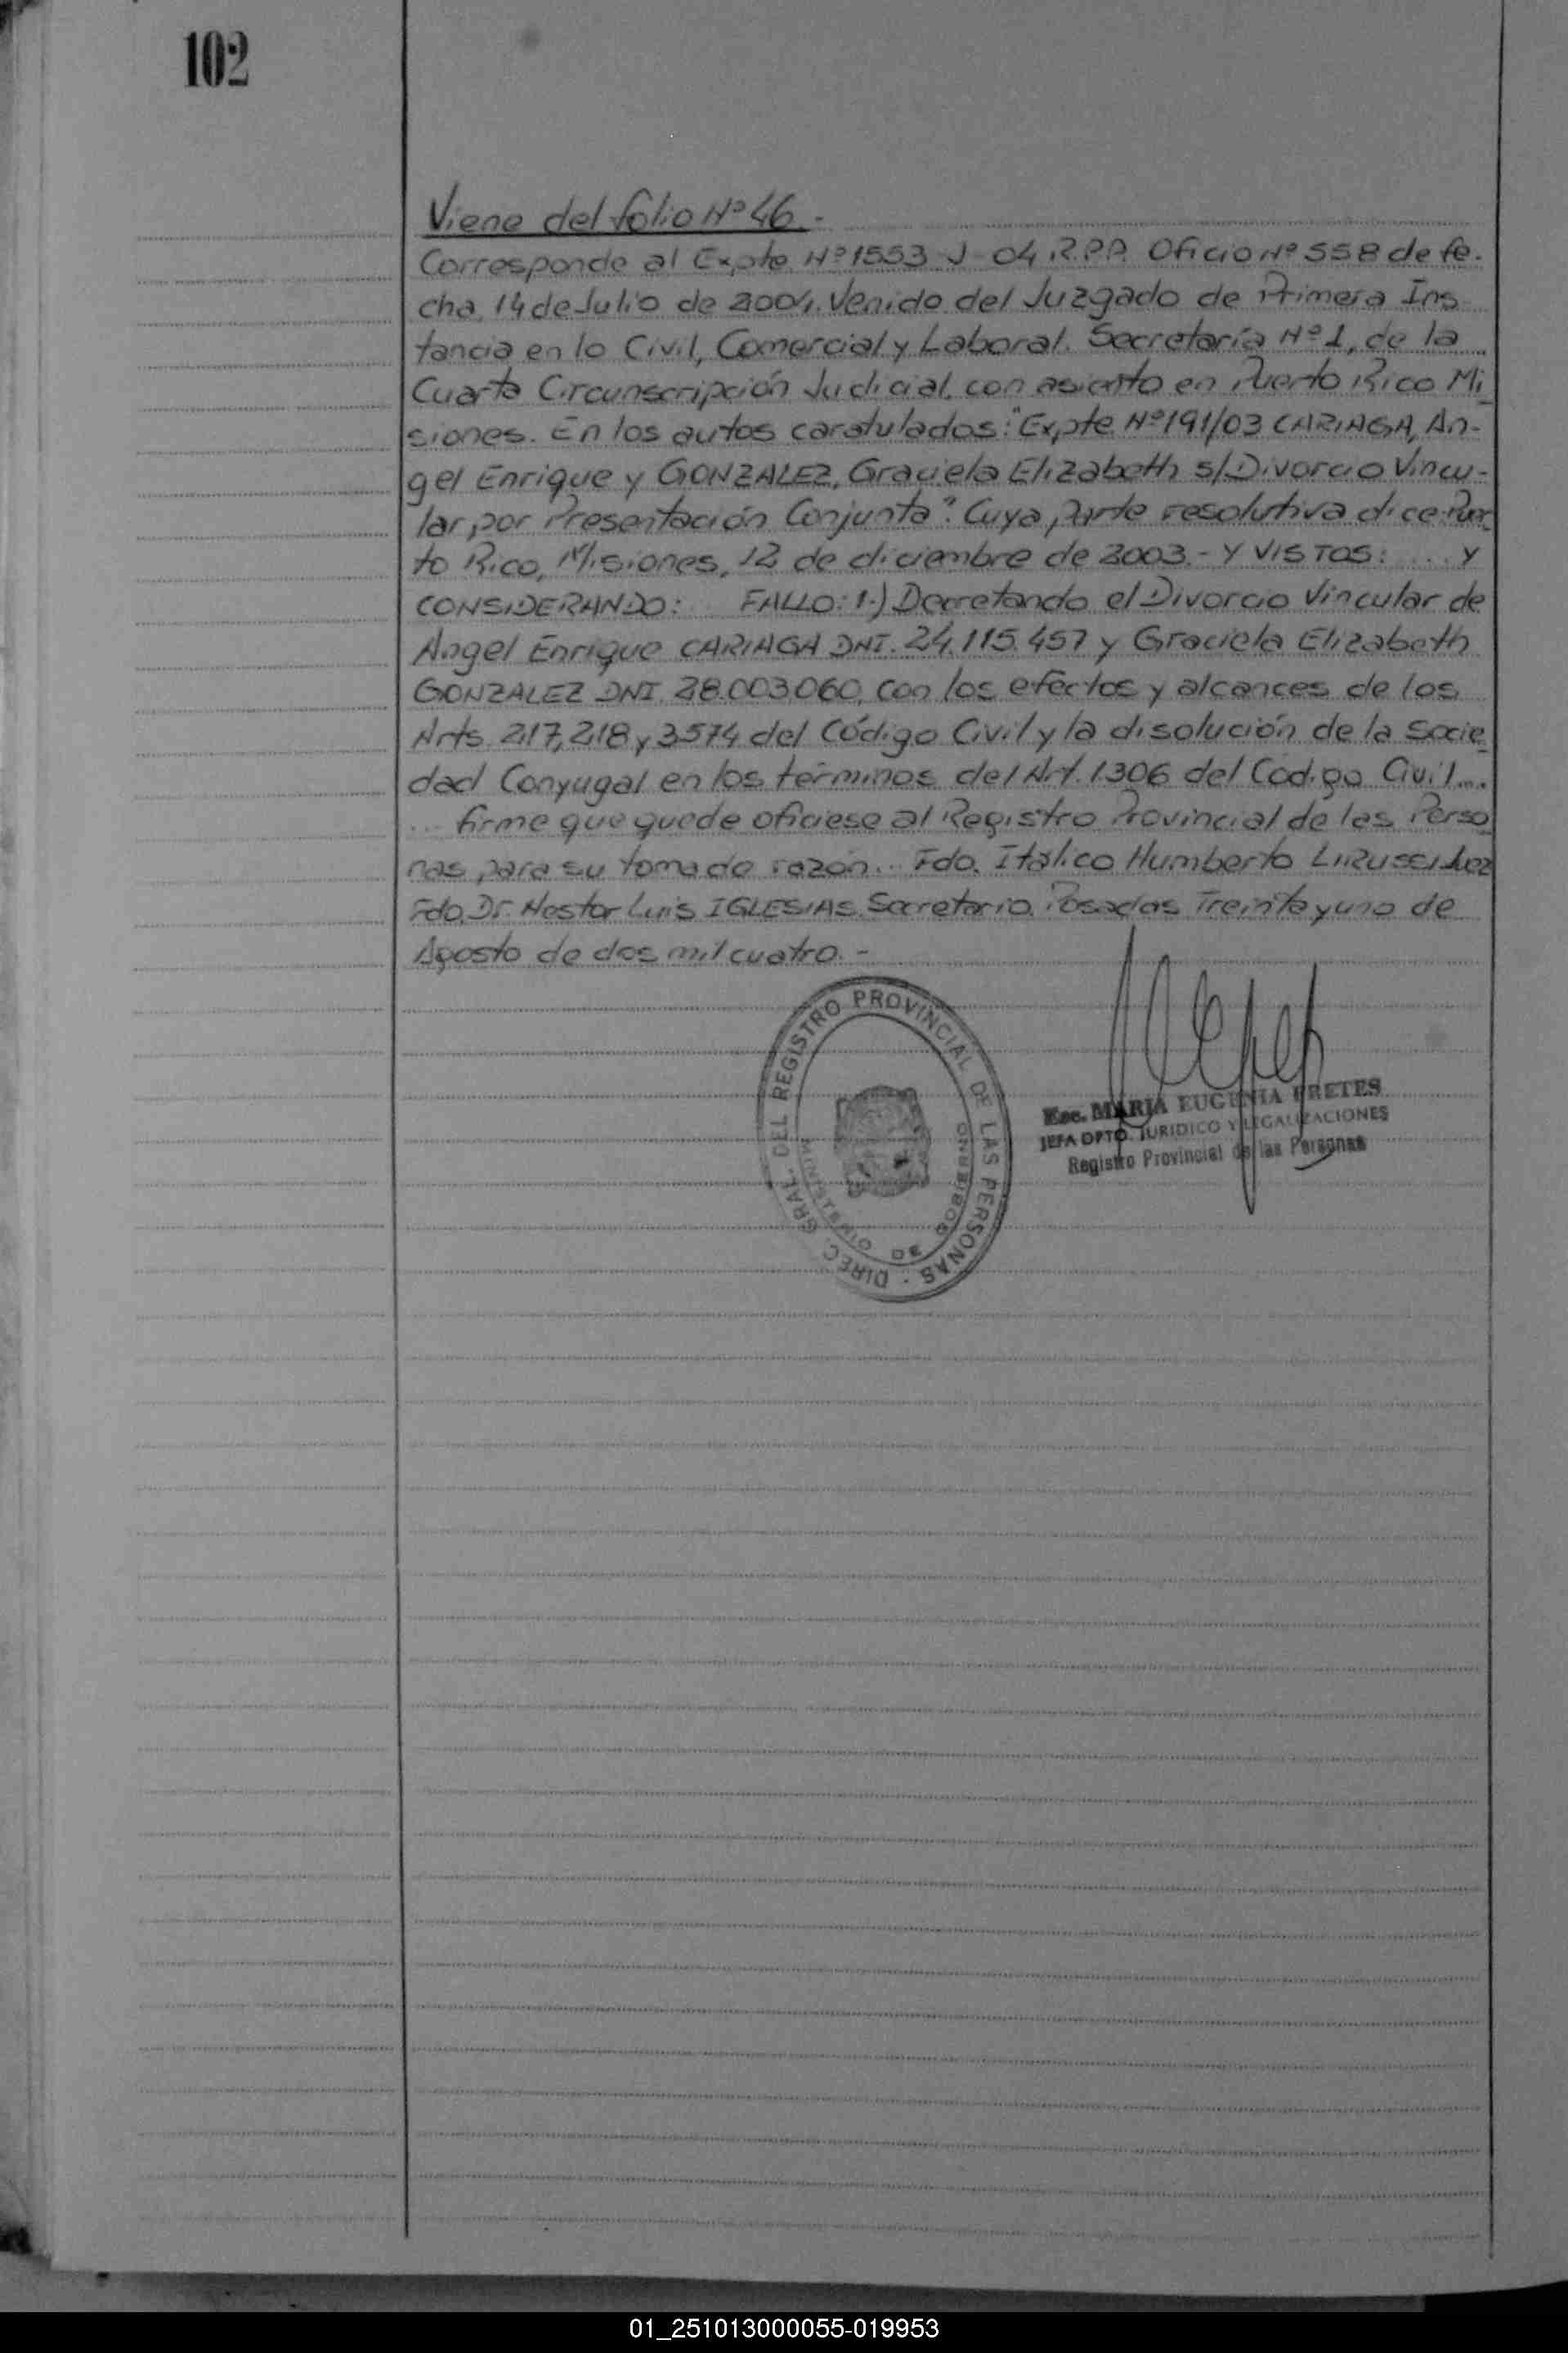 102
Viene del folio Nº 46.-
Corresponde al Expte. Nº 1553-J-04.R.P.P. Oficio Nº 558 de fe-
cha 14 de Julio de 2004. Venido del Juzgado de Primera Ins
tancia en lo Civil, Comercial y Laboral. Secretaría Nº 1, de la
Cuarta Circunscripción Judicial con asiento en Puerto Rico Mi
siones. En los autos caratulados: "Expte. Nº 191/03 CARIAGA, An-
gel Enrique y GONZALEZ, Graciela Elizabeth s/Divorcio Vincu-
lar por Presentación Conjunta". Cuya parte resolutiva dice: Puer
to Rico, Misiones, 12 de diciembre de 2003.- Y VISTOS: ... Y
CONSIDERANDO: FALLO: 1-) Decretando el Divorcio Vincular de
Angel Enrique CARIAGA DNI. 24.115.457 y Graciela Elizabeth
GONZALEZ DNI. 28.003.060, con los efectos y alcances de los
Arts. 217, 218 y 3574 del Código Civil y la disolución de la Socie
dad Conyugal en los términos del Art. 1306 del Código Civil....
... firme que quede ofíciese al Registro Provincial de las Perso
nas para su toma de razón... Fdo. Itálico Humberto
Fdo. Dr. Nestor Luis IGLESIAS. Secretario. Posadas Treinta y uno de
Agosto de dos mil cuatro.-
DIREC. GRAL. DEL REGISTRO PROVINCIAL DE LAS PERSONAS
MINISTERIO DE GOBIERNO
Esc. MARIA EUGENIA PRETES
JEFA DPTO. JURIDICO Y LEGALIZACIONES
Registro Provincial de las Personas
01_251013000055-019953